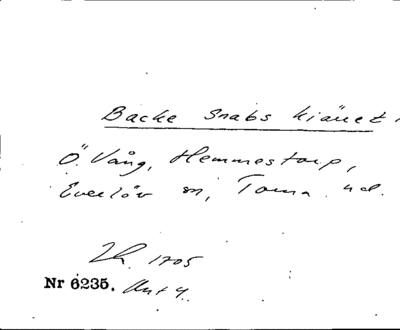 Backe Snabs kiäuet
Ö. Vång, Hemmestorp,
Everlöv sn, Torna hd.
LR. 1705
Nr 6235. Akt 4.